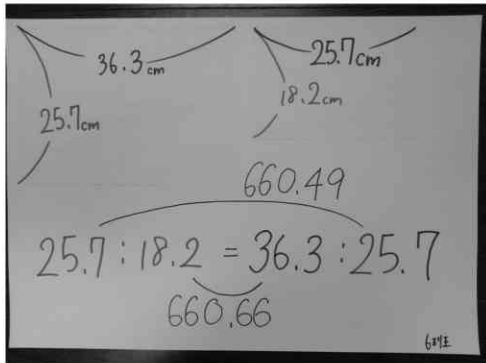 36.3cm 25.7cm
25.7cm 18.2cm
660.49
25.7 : 18.2 = 36.3 : 25.7
660.66
6조